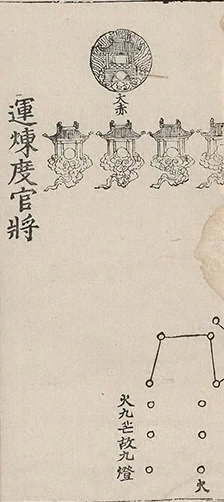 大赤
運煉度官將
火九芒故九燈
火